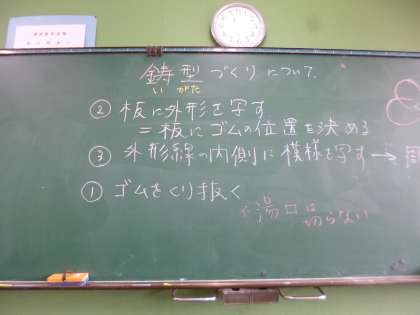 鋳型づくりについて.
いがた
② 板に外形を写す
= 板にゴムの位置を決める
③ 外形線の内側に模様を写す→
① ゴムをくり抜く
湯口は
切らない